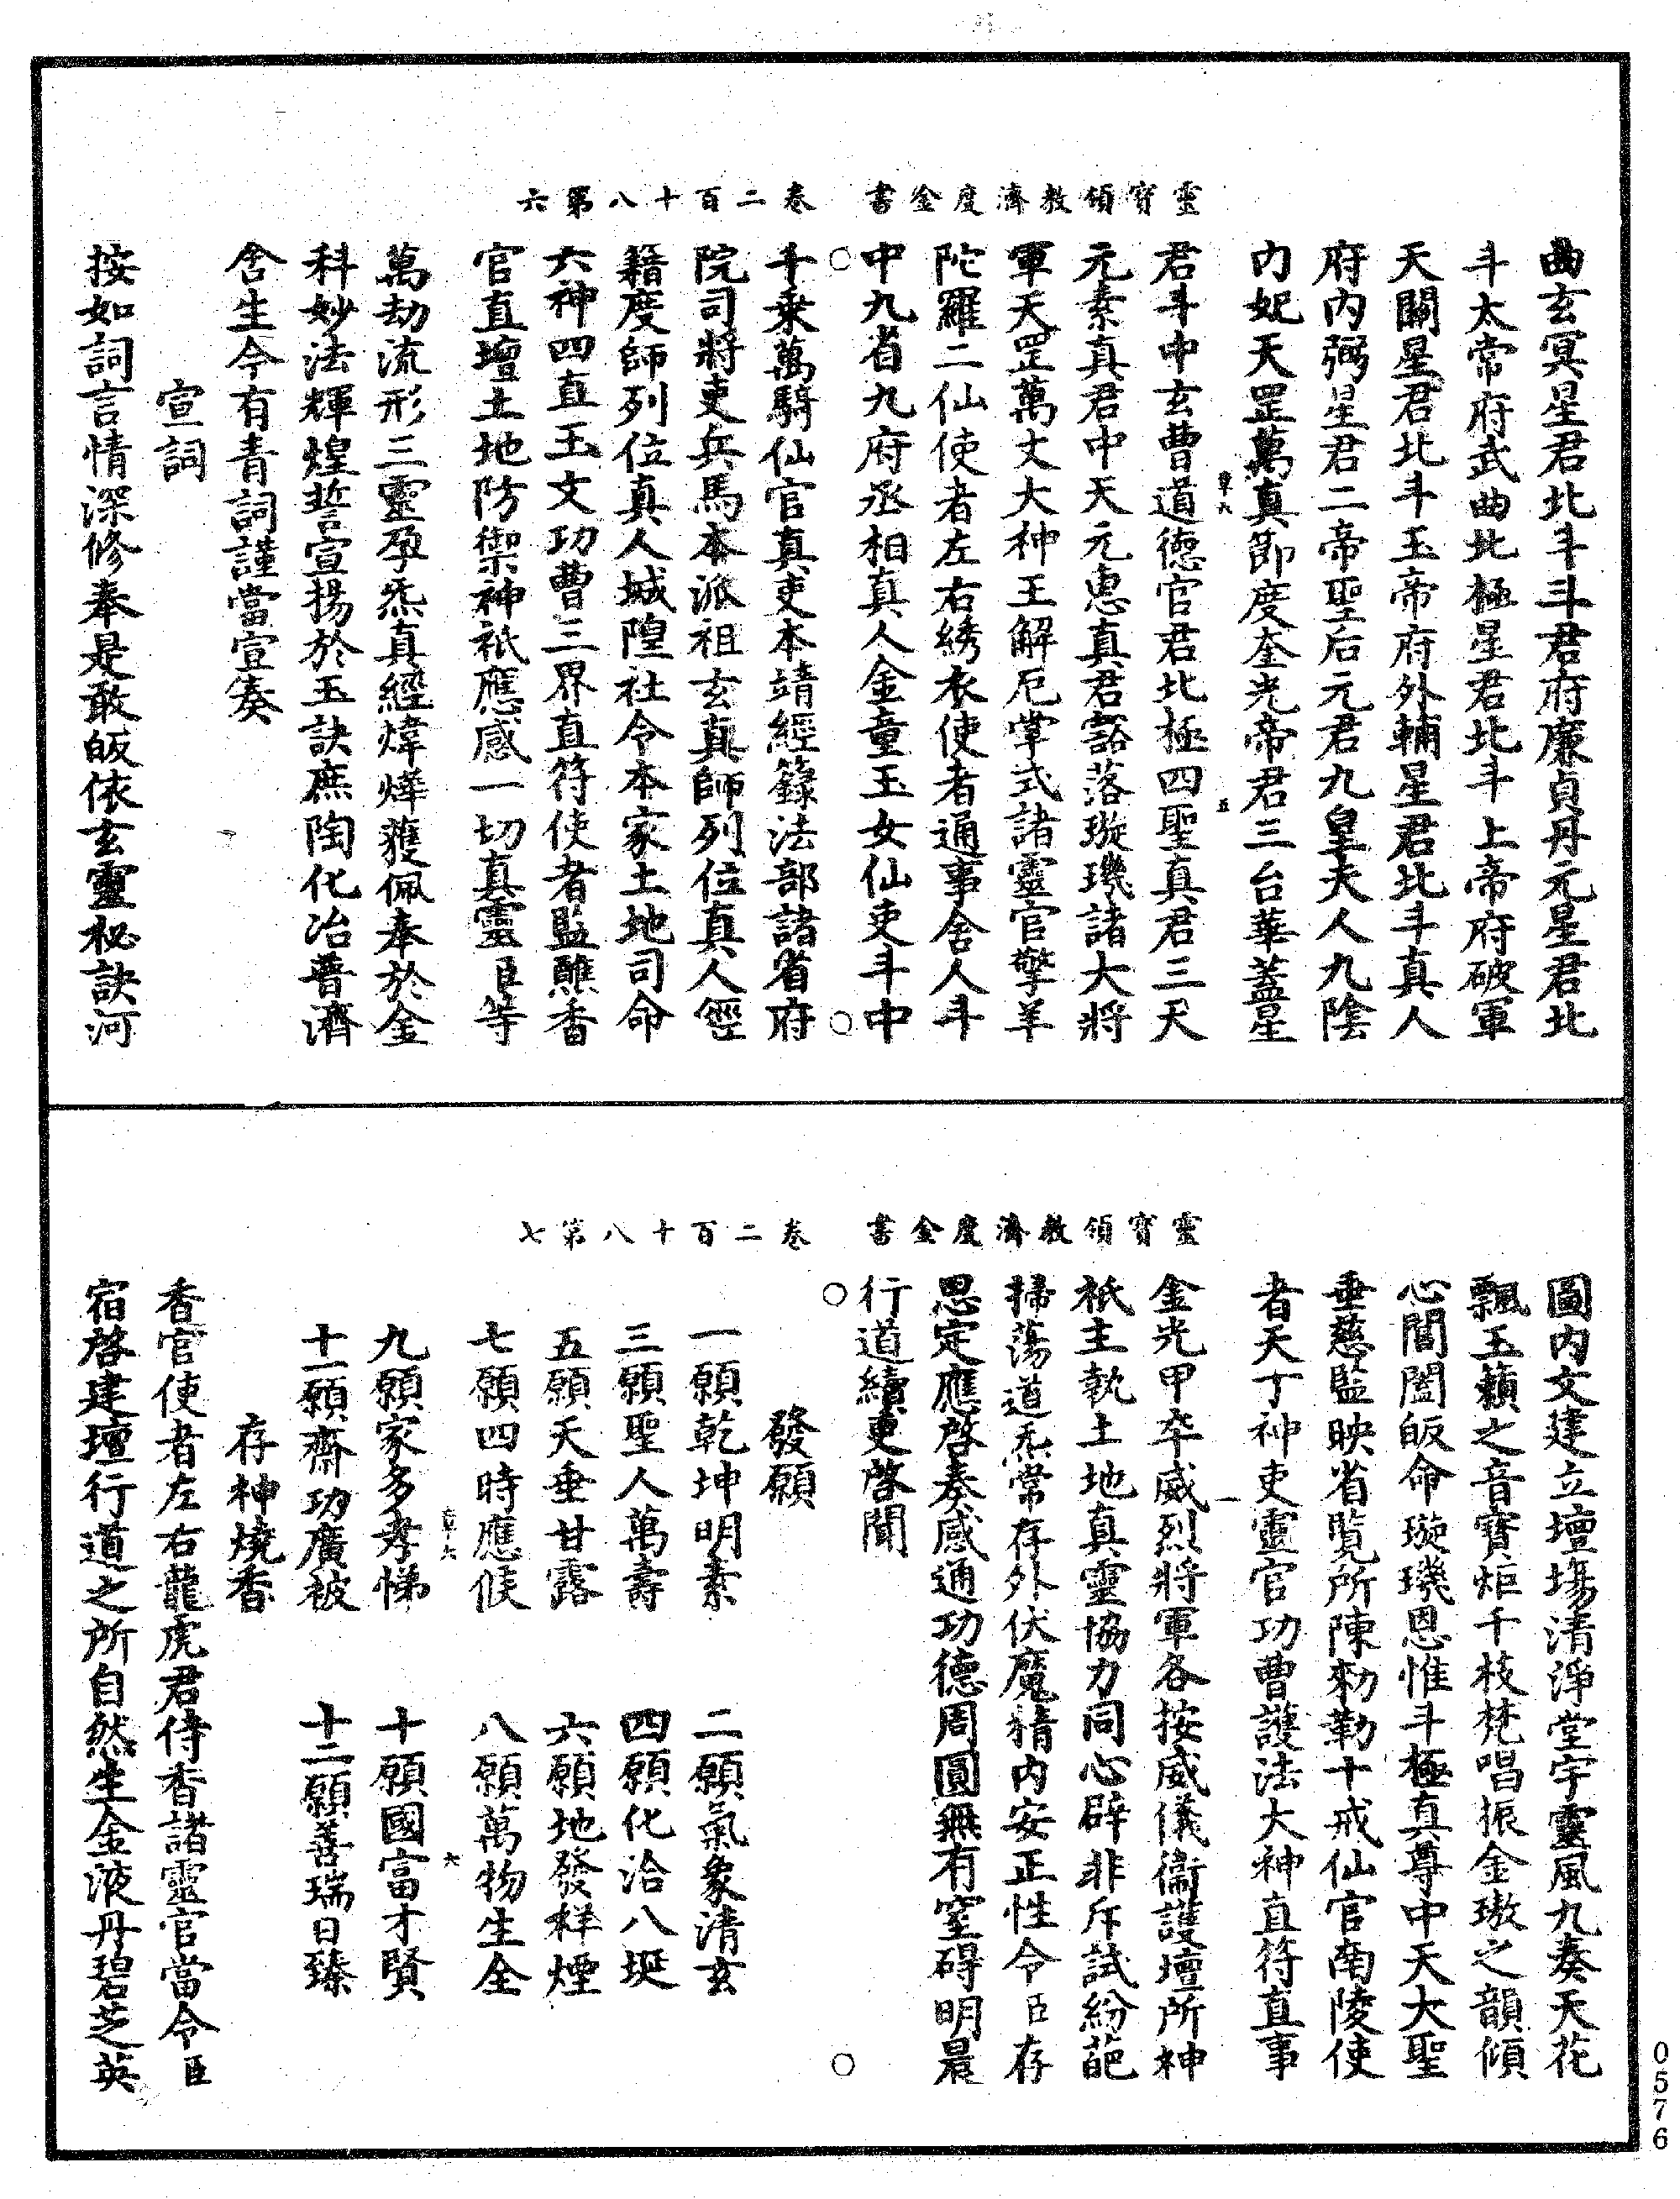 靈寶領教濟度金書　卷二百十八第六
曲玄冥星君北斗斗君府廉貞丹元星君北
斗太常府武曲北極星君北斗上帝府破軍
天關星君北斗玉帝府外輔星君北斗真人
府內弼星君二帝聖后元君九皇夫人九陰
內妃天罡萬真節度奎光帝君三台華蓋星
君斗中玄曹道德官君北極四聖真君三天
元素真君中天元惠真君豁落璇璣諸大將
軍天罡萬丈大神王解厄掌式諸靈官擎羊
陀羅二仙使者左右綉衣使者通事舍人斗
中九省九府丞相真人金童玉女仙吏斗中
千乘萬騎仙官真吏本靖經籙法部諸省府
院司將吏兵馬本派祖玄真師列位真人經
籍度師列位真人城隍社令本家土地司命
六神四直玉文功曹三界直符使者監醮香
官直壇土地防禦神祇應感一切真靈臣等
萬劫流形三靈孕炁真經煒燁獲佩奉於金
科妙法輝煌誓宣揚於玉訣庶陶化冶普濟
含生今有青詞謹當宣奏
宣詞
按如詞言情深修奉是敢皈依玄靈秘訣河
靈寶領教濟度金書　卷二百十八第七
圖內文建立壇場清淨堂宇靈風九奏天花
飄玉籟之音寶炬千枝梵唱振金璈之韻傾
心閶闔皈命璇璣恩惟斗極真尊中天大聖
垂慈監映省覽所陳勑勒十戒仙官南陵使
者天丁神吏靈官功曹護法大神直符直事
金光甲卒威烈將軍各按威儀衞護壇所神
祇主執土地真靈協力同心辟非斥試紛葩
掃蕩道炁常存外伏魔精內安正性令臣存
思定應啓奏感通功德周圓無有窒碍明晨
行道續更啓聞
發願
一願乾坤明素　二願氣象清玄
三願聖人萬壽　四願化洽八埏
五願天垂甘露　六願地發祥煙
七願四時應候　八願萬物生全
九願家多孝悌　十願國富才賢
十一願齋功廣被　十二願善瑞日臻
存神燒香
香官使者左右龍虎君侍香諸靈官當令臣
宿啓建壇行道之所自然生金液丹碧芝英
0576